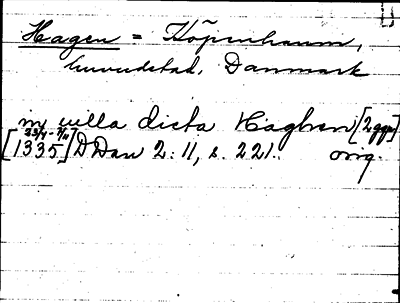 Hagen = Köpenhamn,
huvudstad, Danmark
in villa dicta Haghen [2 ggr]
23/4 - 7/11
[1335] DDan 2: 11, s. 221. orig.